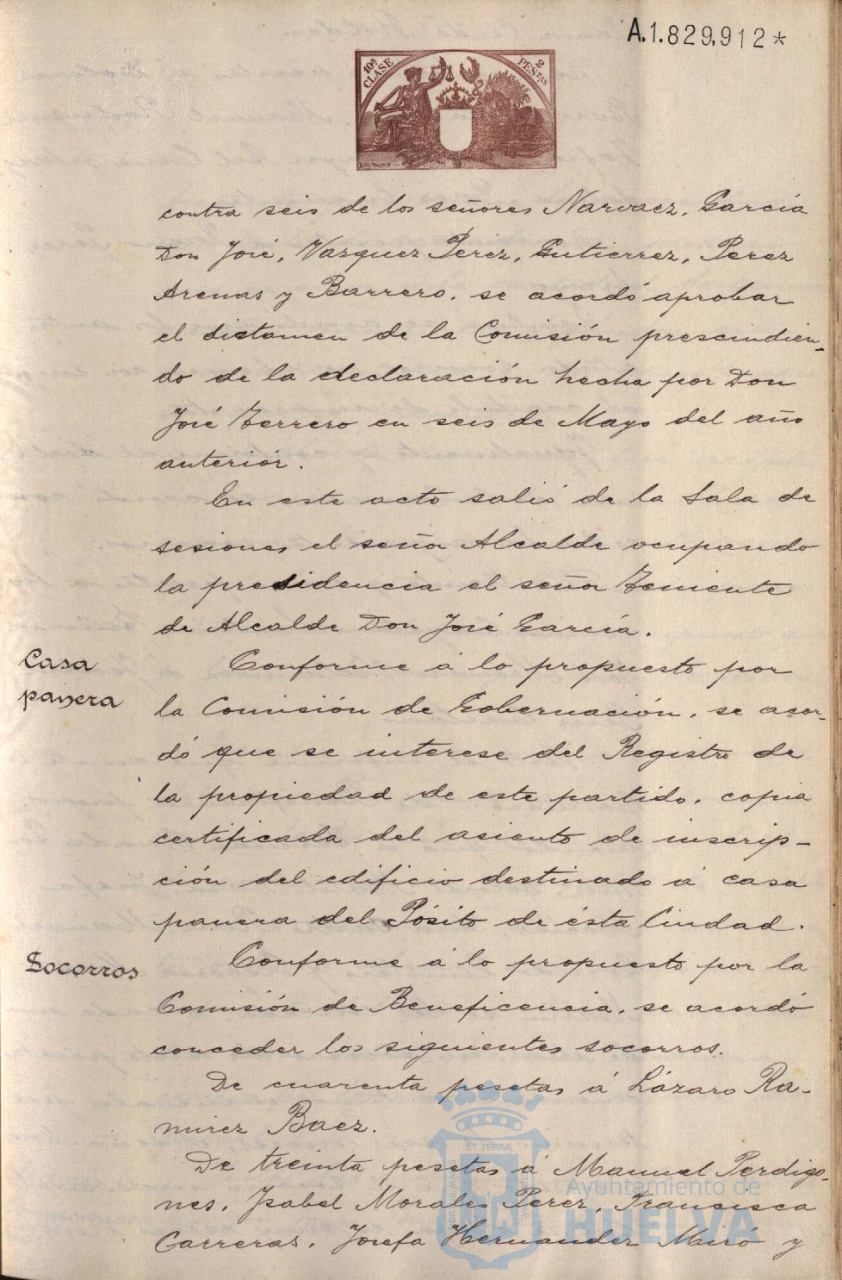 A.1.829,912*
10ª CLASE 2 PESTAS
contra seis de los señores Narvaez, García
Don José, Vazquez Perez, Gutierrez, Perez
Arenas y Barrero, se acordó aprobar
el dictamen de la Comisión prescindien-
do de la declaración hecha por Don
José Ferrero en seis de Mayo del año
anterior.
En este acto salió de la Sala de
sesiones el señor Alcalde ocupando
la presidencia el señor Teniente
de Alcalde Don José García.
Casa
panera
Conforme á lo propuesto por
la Comisión de Gobernación, se acor-
dó que se interese del Registro de
la propiedad de este partido, copia
certificada del asiento de inscrip-
ción del edificio destinado á casa
panera del Pósito de ésta Ciudad.
Socorros
Conforme á lo propuesto por la
Comisión de Beneficencia, se acordó
conceder los siguientes socorros.
De cuarenta pesetas á Lázaro Ra-
mirez Baez.
De treinta pesetas á Manuel Perdigo-
nes, Isabel Morales Perez, Francisca
Carreras, Josefa Hernander Miró y
ET TERRÆ
Ayuntamiento de
HUELVA